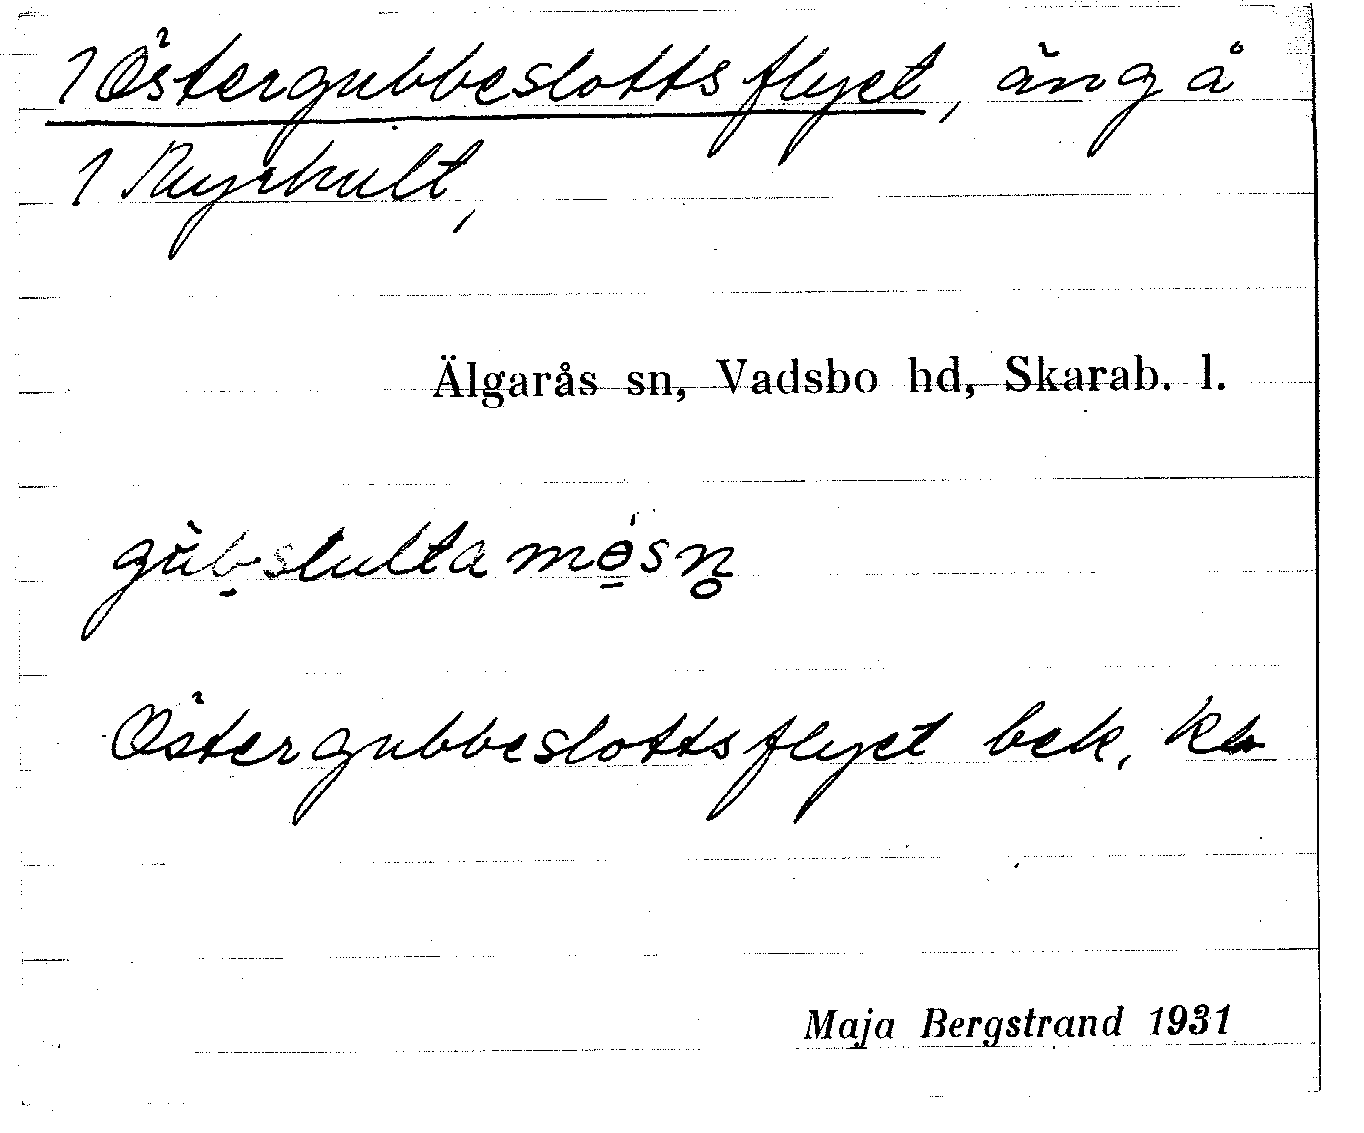 1 Östergubbeslottsflyet, äng å
1 Myrhult,
Älgarås sn, Vadsbo hd, Skarab. l.
gùb̠slulta mө̠́sn̥
Östergubbeslottsflyet bek.
Maja Bergstrand 1931